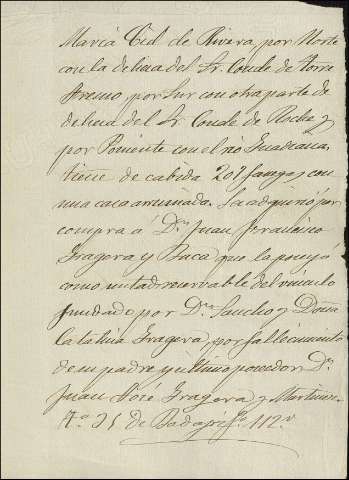 Maria Cid de Rivera, por Norte
con la dehesa del Sr. Conde de torre
Fresno, por Sur con otra parte de
dehesa del Sr Conde de Roche y
por Poniente con el rio Guadiana,
tiene de cabida 207 fanegs. con
una casa arruinada. La adquirió por
compra á Dn. Juan Francisco
Gragera y Baca que la poseyó
como mitad reservable del vinculo
fundado por Dn. Sancho y Doña
Catalina Gragera, por fallecimiento
de su padre y último poseedor Dn.
Juan José Gragera y Martinez
Tº. 25 de Badaj. fº. 112 vº